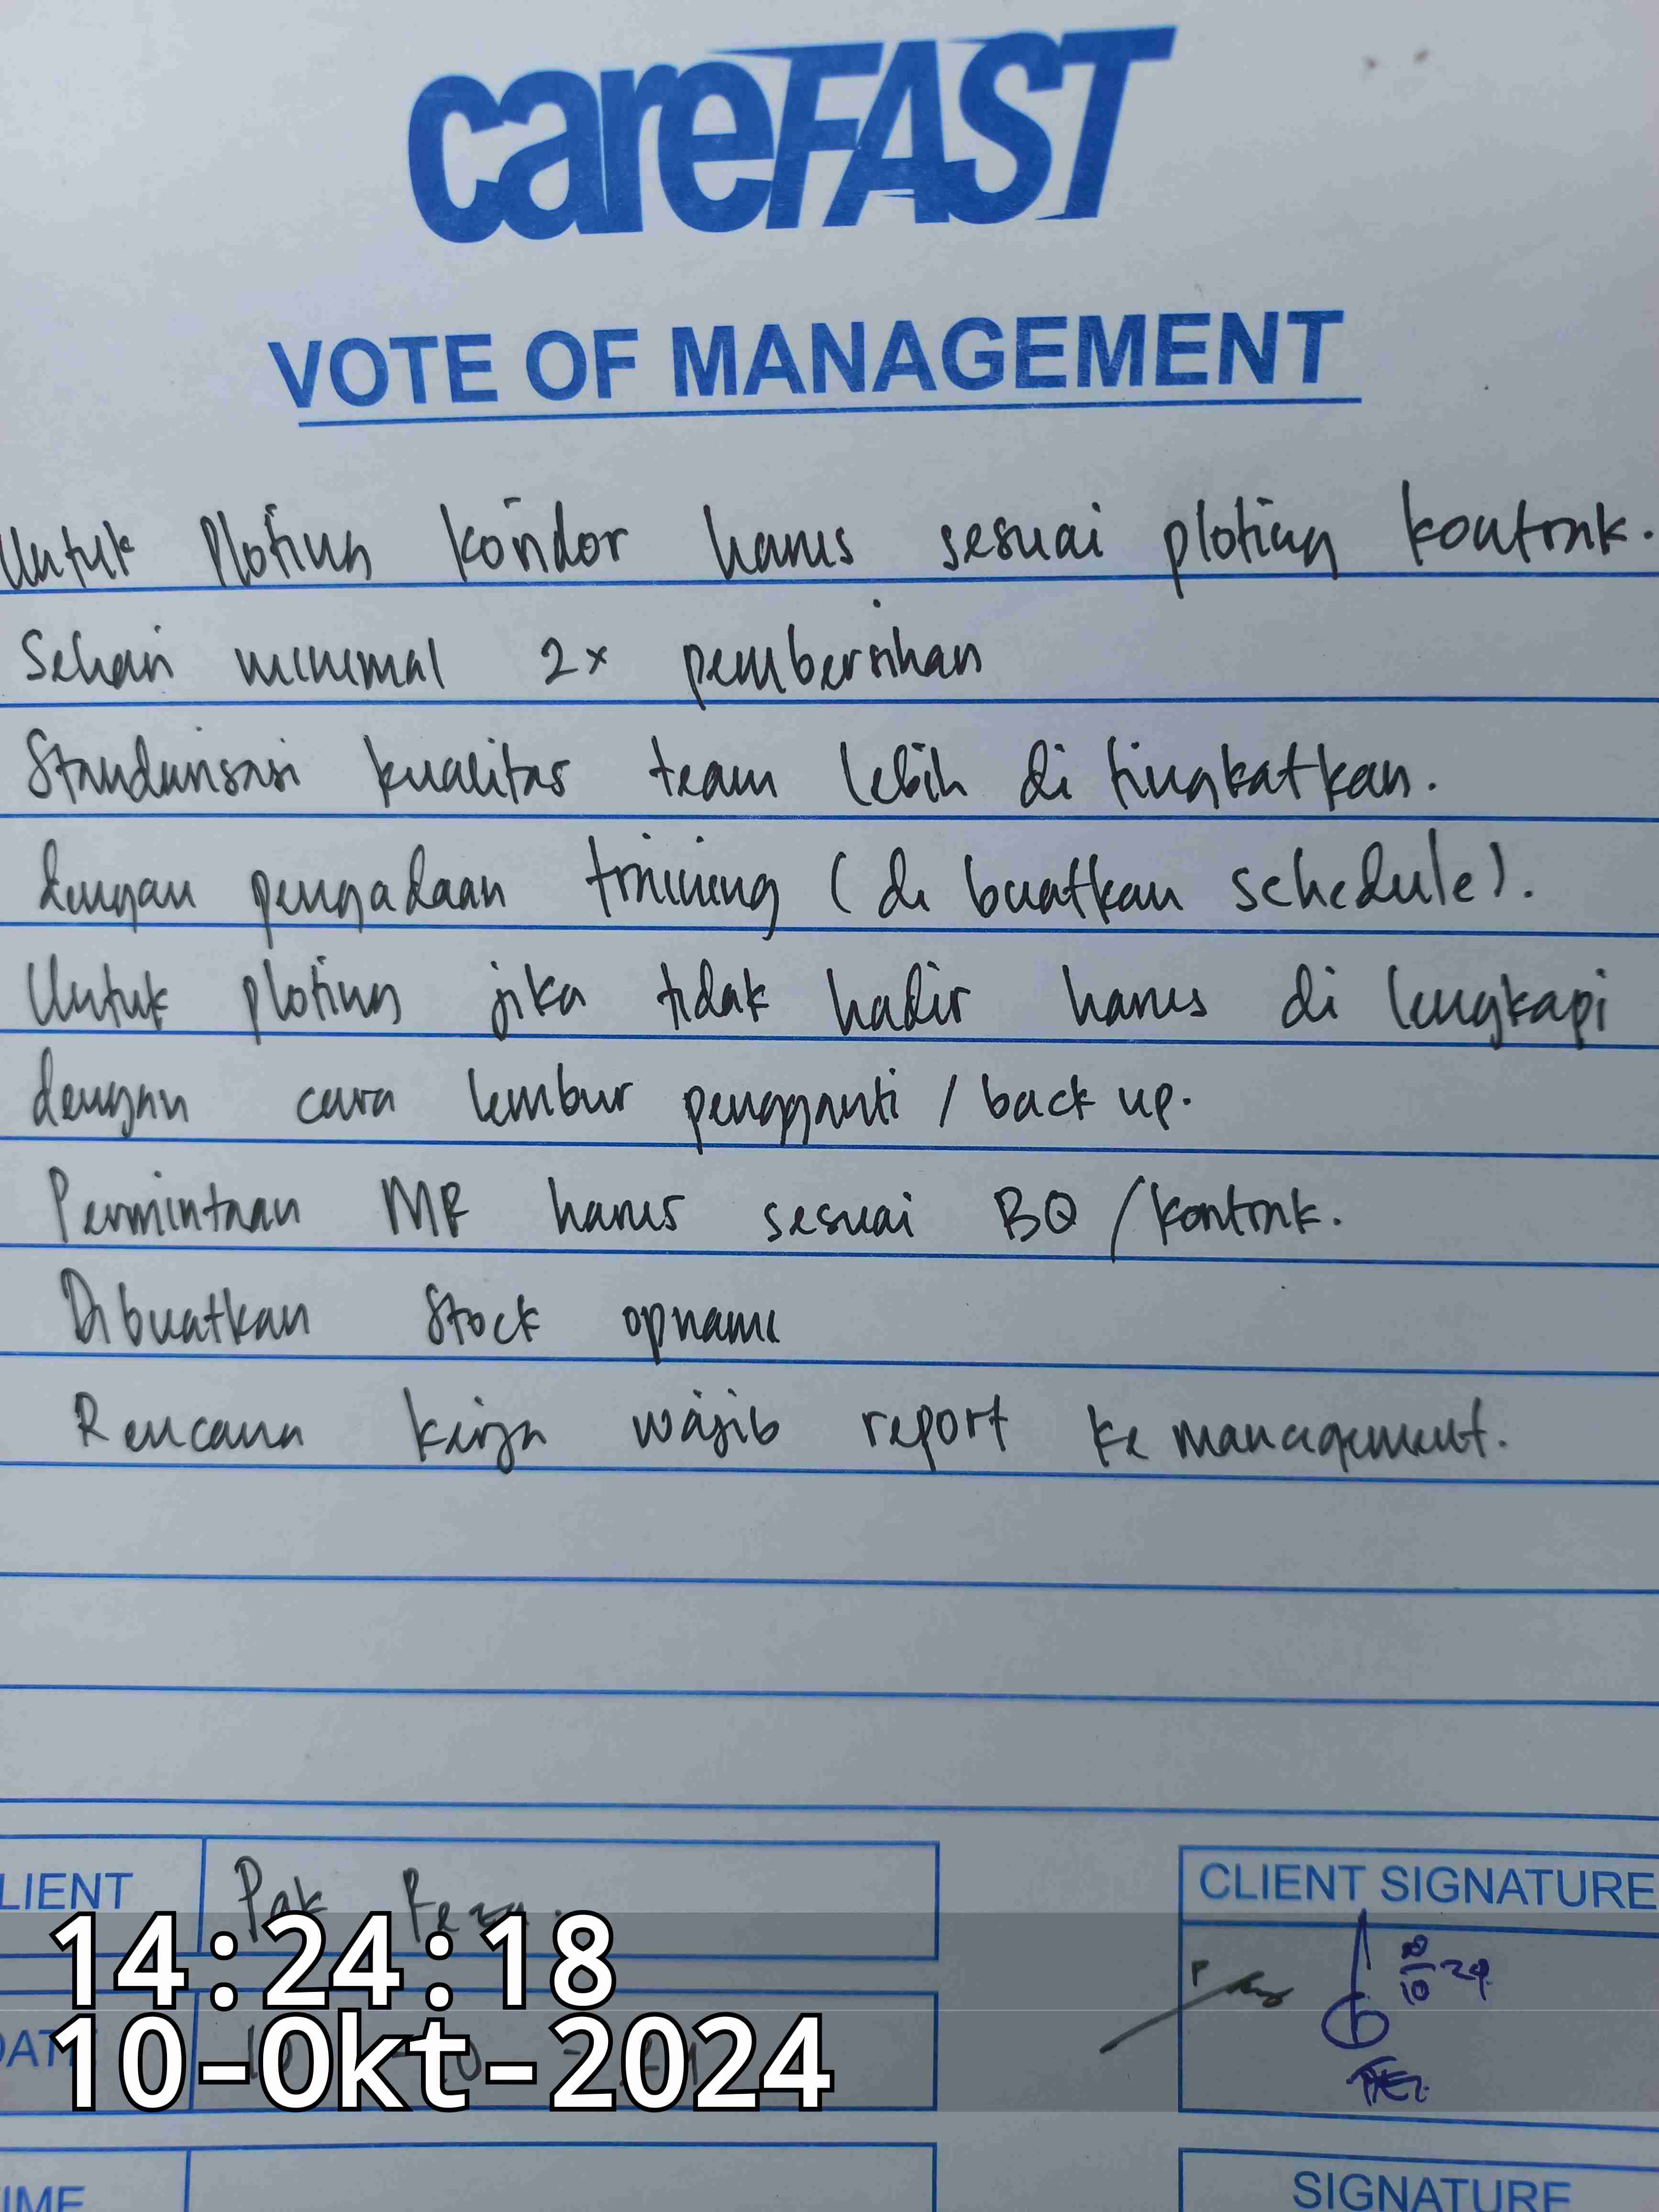 careFAST
VOTE OF MANAGEMENT
Untuk Ploting koridor harus sesuai ploting kontrak.
Sehari minimal 2x pembersihan
Standarisasi kualitas team lebih di tingkatkan.
dengan pengadaan training (di buatkan schedule).
Untuk ploting jika tidak hadir harus di lengkapi
dengan cara lembur pengganti / back up.
Permintaan MR harus sesuai BQ / kontrak.
Dibuatkan Stock opname
Rencana kerja wajib report ke management.
LIENT Pak Reza.
CLIENT SIGNATURE
14:24:18
10-Okt-2024
IME
SIGNATURE